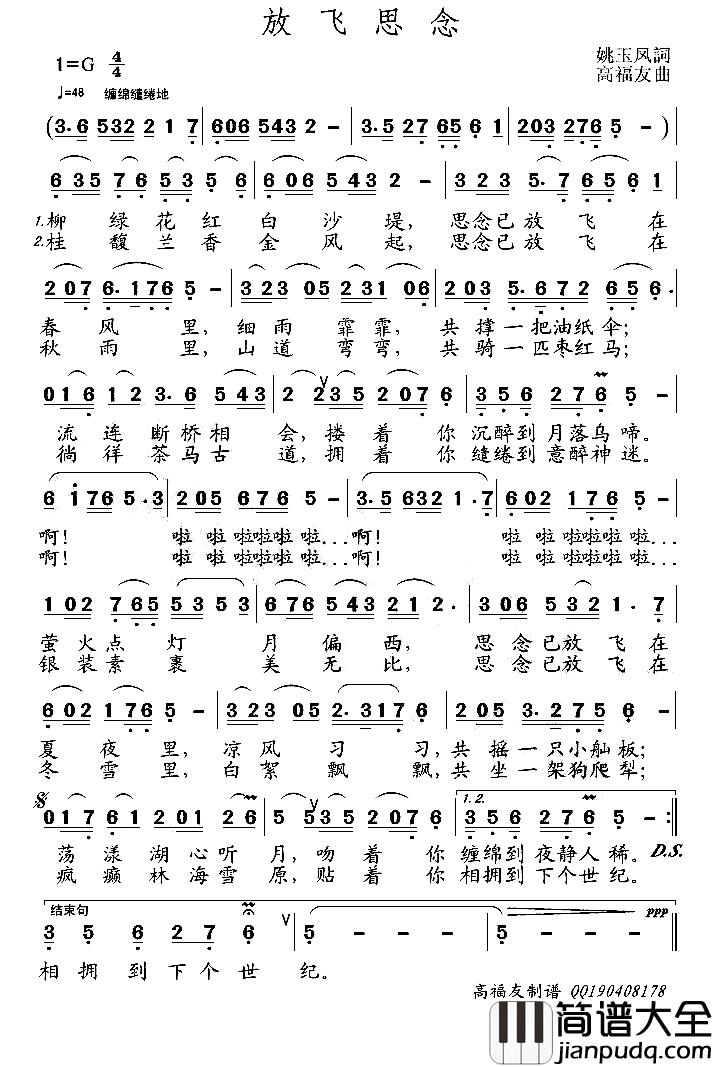 放飞思念
1=G 4/4
姚玉凤詞
高福友曲
♩=48 缠绵缱绻地
(3·6 532 2 1 7 | 606 543 2 - | 3·5 27 65 6 1 | 203 276 5 - )
6 35 76 53 5 56 | 6 06 543 2 - | 323 5·7 65 61
1.柳绿花红白沙堤，思念已放飞在
2.桂馥兰香金风起，思念已放飞在
207 6·176 5 - | 323 05 231 06 | 203 5·672 65 6·
春风里，细雨霏霏，共撑一把油纸伞；
秋雨里，山道弯弯，共骑一匹枣红马；
016 12 3·6 543 | 2 235 207 6 | 356 276 5 -
流连断桥相会，搂着你沉醉到月落乌啼。
徜徉茶马古道，拥着你缱绻到意醉神迷。
6 i 76 5·3 | 205 676 5 - | 3·5 632 1·7 | 602 176 5 -
啊！啦啦啦啦啦...啊！啦啦啦啦啦...
啊！啦啦啦啦啦...啊！啦啦啦啦啦...
102 765 535 3 | 676 543 212· | 306 532 1·7
萤火点灯月偏西，思念已放飞在
银装素裹美无比，思念已放飞在
602 176 5 - | 323 05 2·317 6 | 205 3·275 6 -
夏夜里，凉风习习，共摇一只小舢板；
冬雪里，白絮飘飘，共坐一架狗爬犁；
017 61 201 26 | 5 535 207 6 | 1.2. 356 276 5 - :|
荡漾湖心听月，吻着你缠绵到夜静人稀。D.S.
疯癫林海雪原，贴着你相拥到下个世纪。
结束句 ppp
3 5 6 27 6 | 5 - - - | 5 - - -
相拥到下个世纪。
高福友制谱 QQ190408178
简谱大全
jianpudq.com